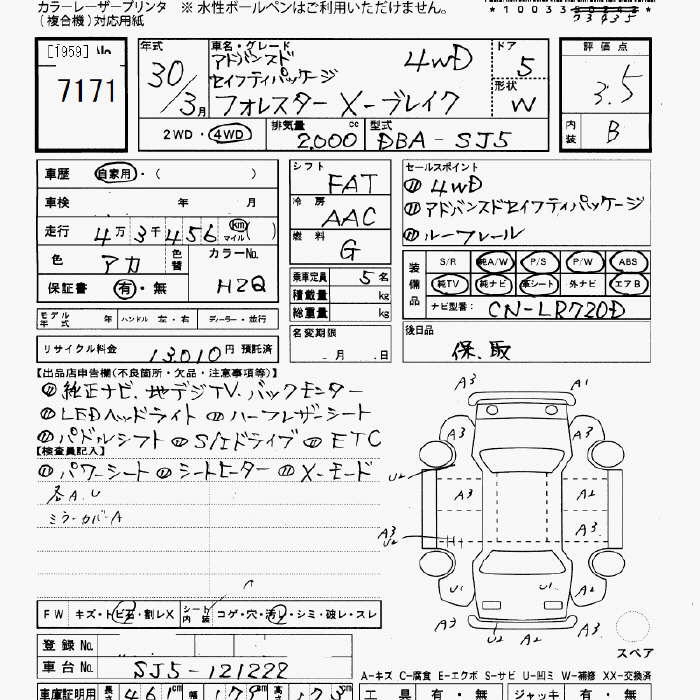 カラーレーザープリンタ ※ 水性ボールペンはご利用いただけません。
(複合機)対応用紙
[1959] No
7171
年式
30/3月
車名・グレード
アドバンスド
セイフティパッケージ
4WD
フォレスター X-ブレイク
ドア
5
形状
W
評価点
3.5
内装
B
2WD・4WD
排気量
2,000 cc
型式
DBA-SJ5
車歴 自家用・( )
車検 年 月
走行 4万3千456 km マイル( )
色 アカ
色替
カラーNo.
H2Q
保証書 有・無
シフト
FAT
冷房
AAC
燃料
G
乗車定員 5 名
積載量 kg
総重量 kg
セールスポイント
① 4WD
① アドバンスドセイフティパッケージ
① ルーフレール
装備品
S/R 純A/W P/S P/W ABS
純TV 純ナビ 革シート 外ナビ エアB
ナビ型番: CN-LR720D
モデル年式 年 ハンドル 左・右 ディーラー・並行
リサイクル料金 13,010 円 預託済
名変期限
月 日
後日品
保、取
【出品店申告欄(不良箇所・欠品・注意事項等)】
① 純正ナビ、地デジTV、バックモニター
① LEDヘッドライト ① ハーフレザーシート
① パドルシフト ① S/Iドライブ ① ETC
【検査員記入】
① パワーシート ① シートヒーター ① X-モード
各A.U
ミラーカバーA
A3 A1
A3 A3
U2
A3 A2
A3
A3
U2
U1 U1
A3 U2 A2 A3
スペア
FW キズ・トビ石・割レX シート内装 コゲ・穴・汚レ・シミ・破レ・スレ
登録 No.
車台 No. SJ5-121228
A=キズ C=腐食 E=エクボ S=サビ U=凹ミ W=補修 XX=交換済
車庫証明用 長さ 461cm 幅
工具 有・無 ジャッキ 有・無